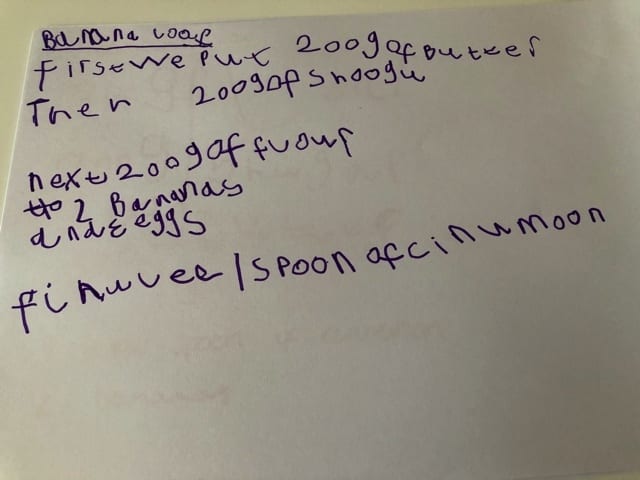 Banana loaf
firstwe put 200gofButter
Then 200gofshoogu
next200gofflour
2 Bananas
and3eggs
finulee 1spoon ofcinumoon